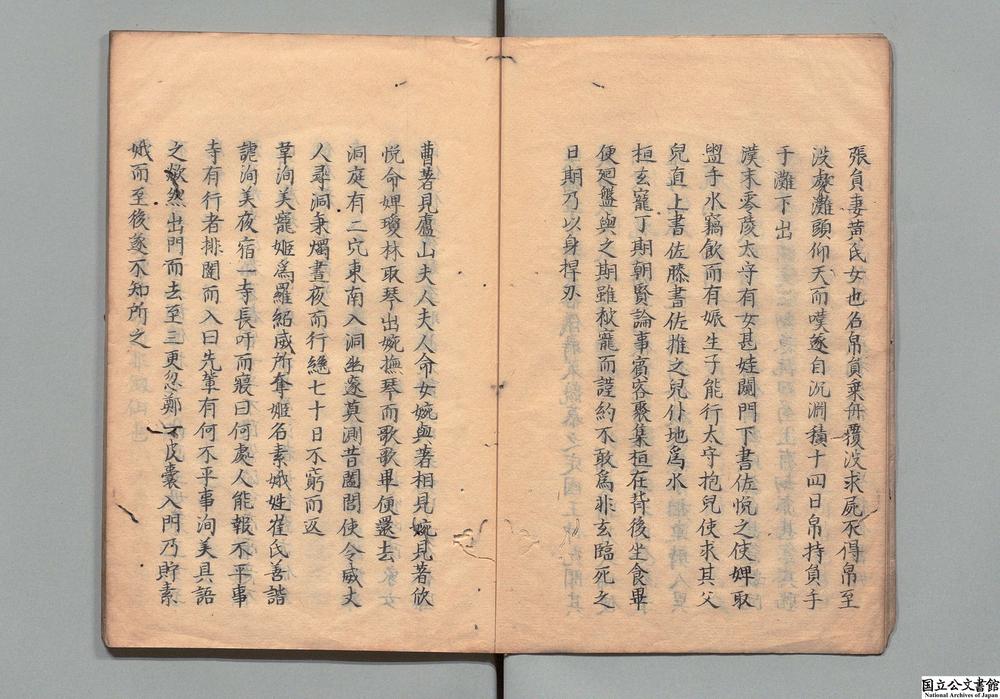 張貞妻黄氏女也名帛貞乗舟覆没求屍不得帛至
没處灘頭仰天而嘆遂自沉淵積十四日帛持貞手
于灘下出
漢末零陵太守有女甚娃闚門下書佐悅之使婢取
盥手水竊飲而有娠生子能行太守抱兒使求其父
兒直上書佐膝書佐推之兒仆地爲水
桓玄寵丁期朝賢論事賓客聚集桓在背後坐食畢
便廻盤與之期雖被寵而謹約不敢爲非玄臨死之
日期乃以身捍刃
曹著見廬山夫人夫人命女婉與著相見婉見著欣
悅命婢瓊林取琴出婉撫琴而歌歌畢便還去
洞庭有二穴東南入洞幽邃莫測昔闔閭使令威丈
人尋洞秉燭晝夜而行繼七十日不窮而返
韋洵美寵姬爲羅紹威所奪姬名素娥姓崔氏善諧
謔洵美夜宿一寺長吁而寢曰何處人能報不平事
寺有行者排闥而入曰先輩有何不平事洵美具語
之欻然出門而去至三更忽鄭一皮囊入門乃貯素
娥而至後遂不知所之
国立公文書館
National Archives of Japan